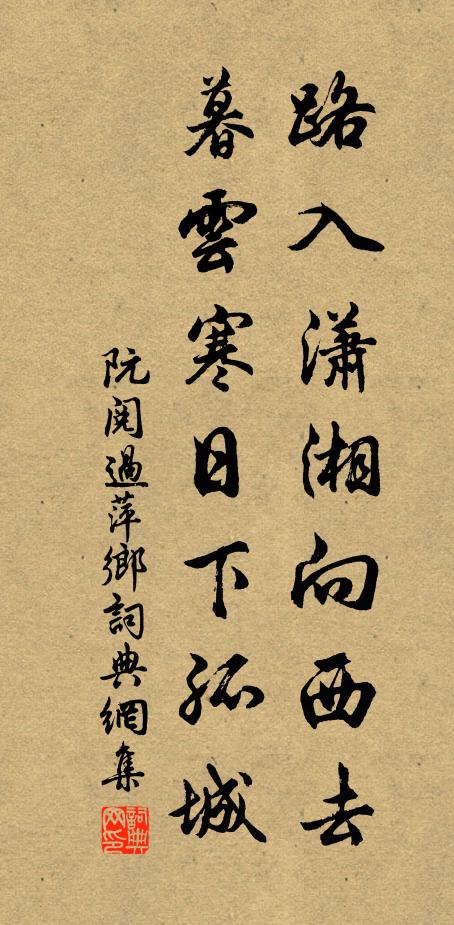 路入瀟湘向西去
暮雲寒日下孤城
阮閱過萍鄉詞典網集
詞典網印